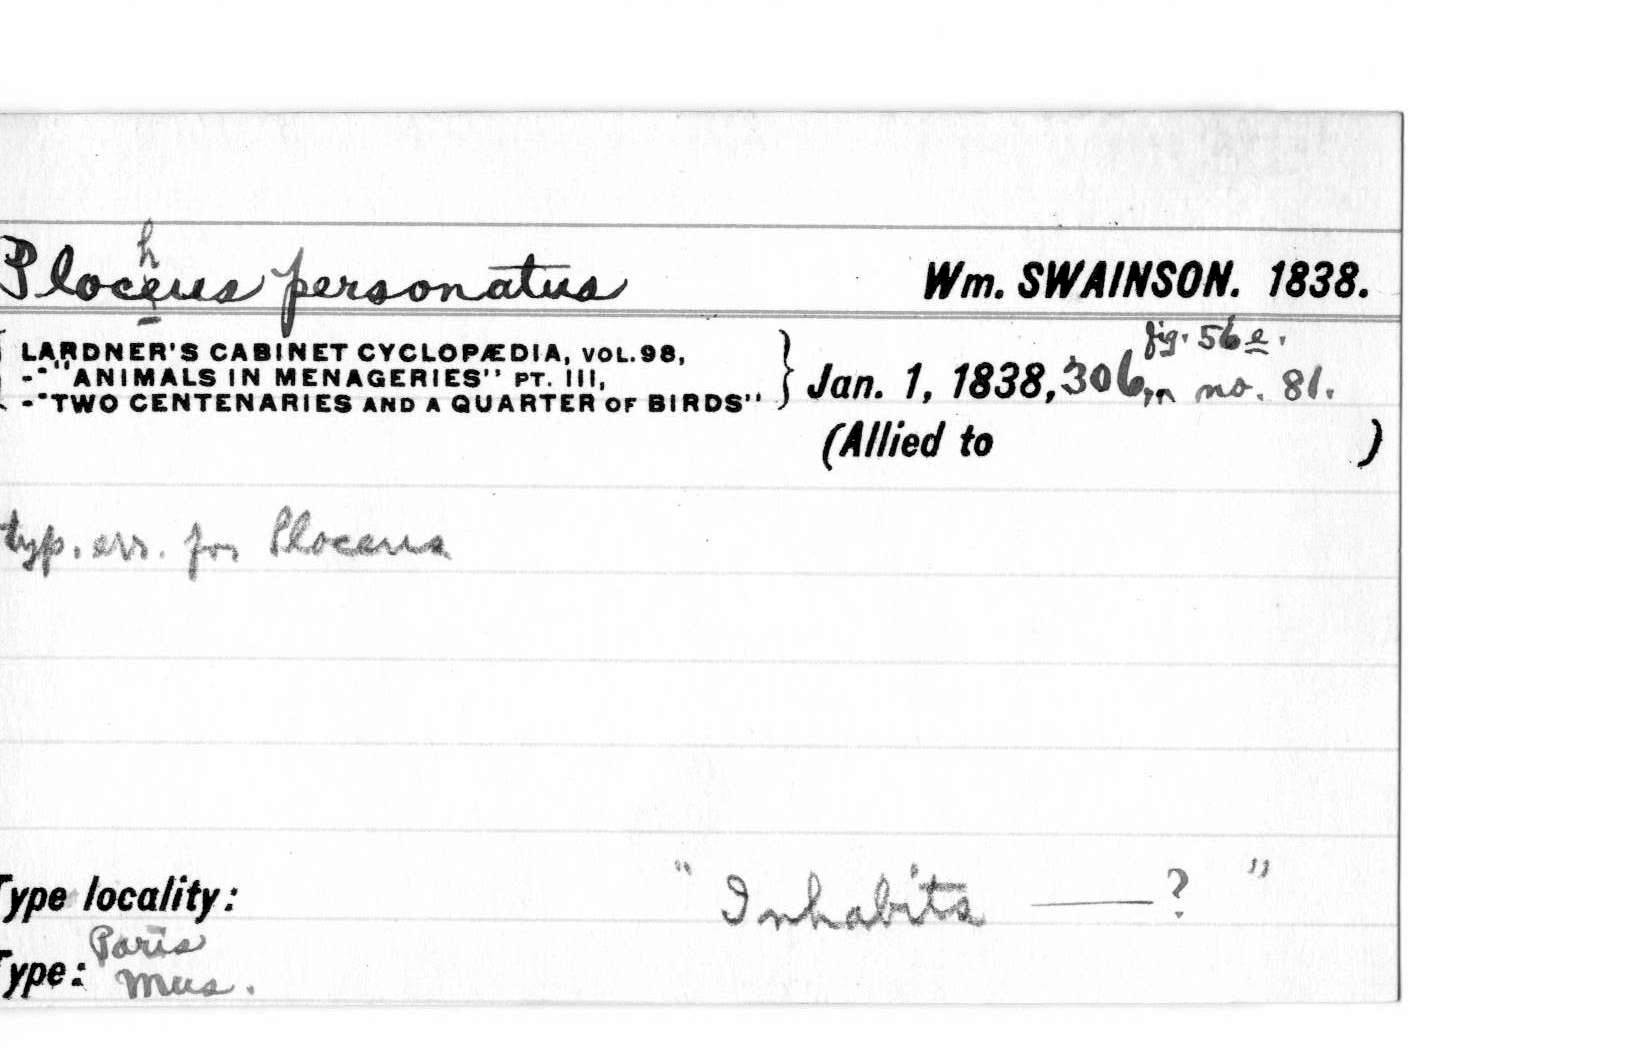 h
Ploceus personatus Wm. SWAINSON. 1838.
LARDNER'S CABINET CYCLOPÆDIA, VOL. 98,
-"ANIMALS IN MENAGERIES" PT. III,
-"TWO CENTENARIES AND A QUARTER OF BIRDS"
fig. 56e.
Jan. 1, 1838, 306, no. 81.
(Allied to )
typ. err. for Ploceus
Type locality: "Inhabits —— ? "
Type: Paris
Mus.